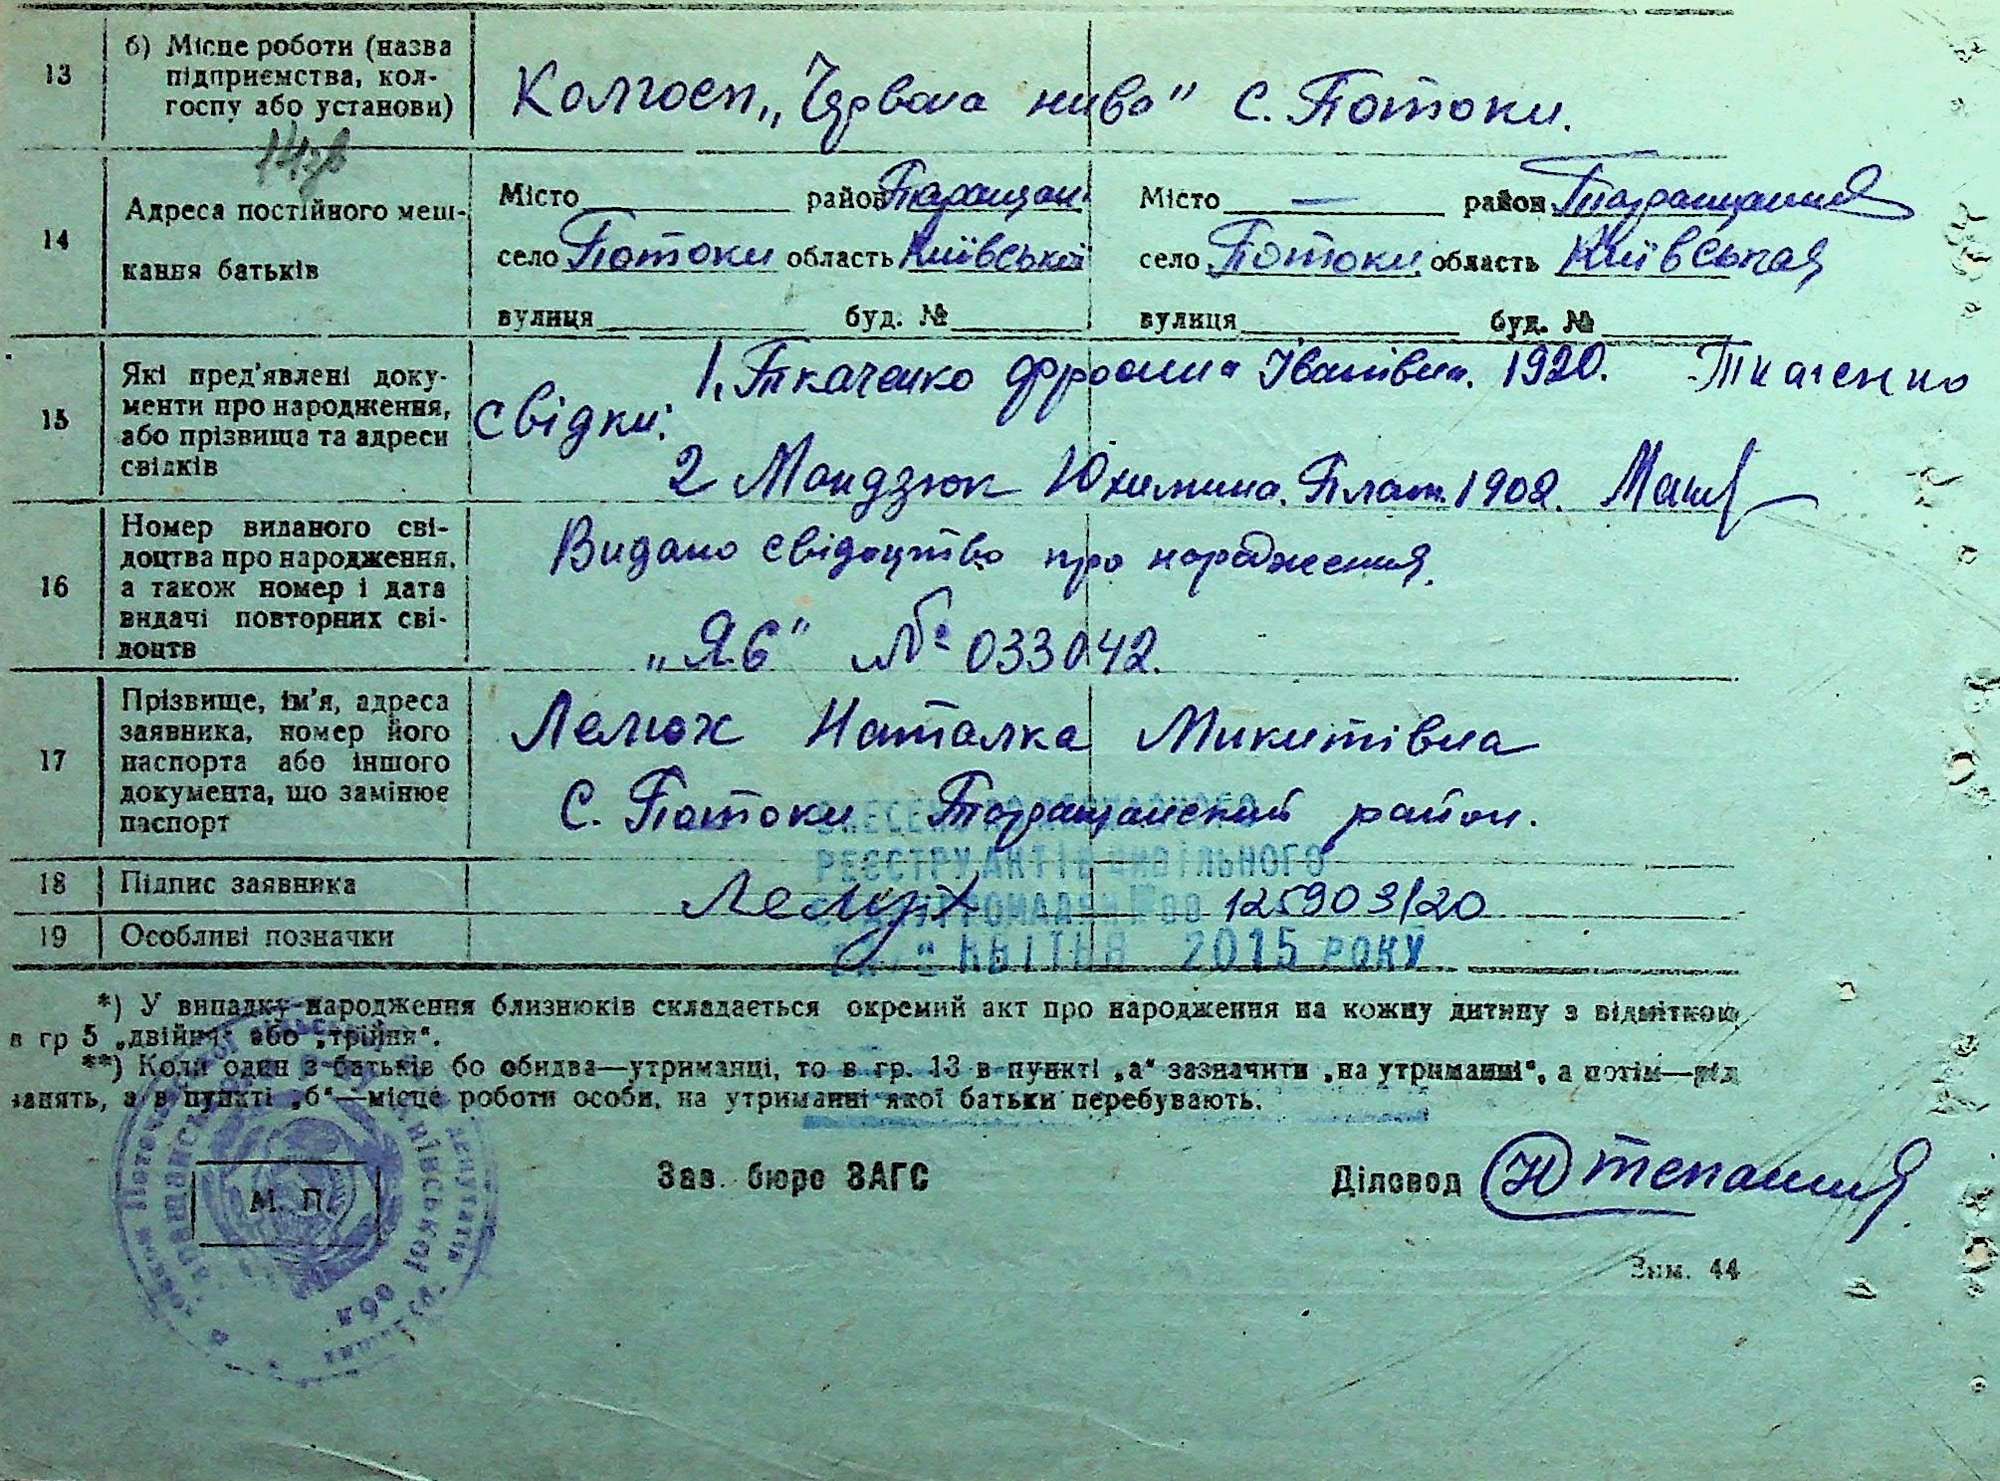 13 б) Місце роботи (назва підприємства, колгоспу або установи) Колгосп „Червона нива" с. Потоки.
14 Адреса постійного мешкання батьків
Місто район Таращан. Місто — район Таращанський
село Потоки область Київської село Потоки область Київська
вулиця буд. № вулиця буд. №
15 Які пред'явлені документи про народження, або прізвища та адреси свідків
свідки:
1. Ткаченко Фросина Іванівна. 1920. Ткаченко
2 Мандзюк Юхимина. Плат. 1902.
16 Номер виданого свідоцтва про народження, а також номер і дата видачі повторних свідоцтв
Видано свідоцтво про народження.
„ЯБ" № 033042.
17 Прізвище, ім'я, адреса заявника, номер його паспорта або іншого документа, що замінює паспорт
Лелюх Наталка Микитівна
с. Потоки Таращанский район.
РЕЄСТРУ АКТІВ ЦИВІЛЬНОГО
18 Підпис заявника Лелюх 125903/20
19 Особливі позначки
КВІТНЯ 2015 РОКУ
*) У випадку народження близнюків складається окремий акт про народження на кожну дитину з відміткою
в гр 5 „двійня" або „трійня".
**) Коли один з батьків бо обидва—утриманці, то в гр. 13 в пункті „а" зазначити „на утриманні", а потім—рід
занять, а в пункті „б"—місце роботи особи, на утриманні якої батьки перебувають.
М. П.
Зав. бюро ЗАГС
Діловод
Зам. 44